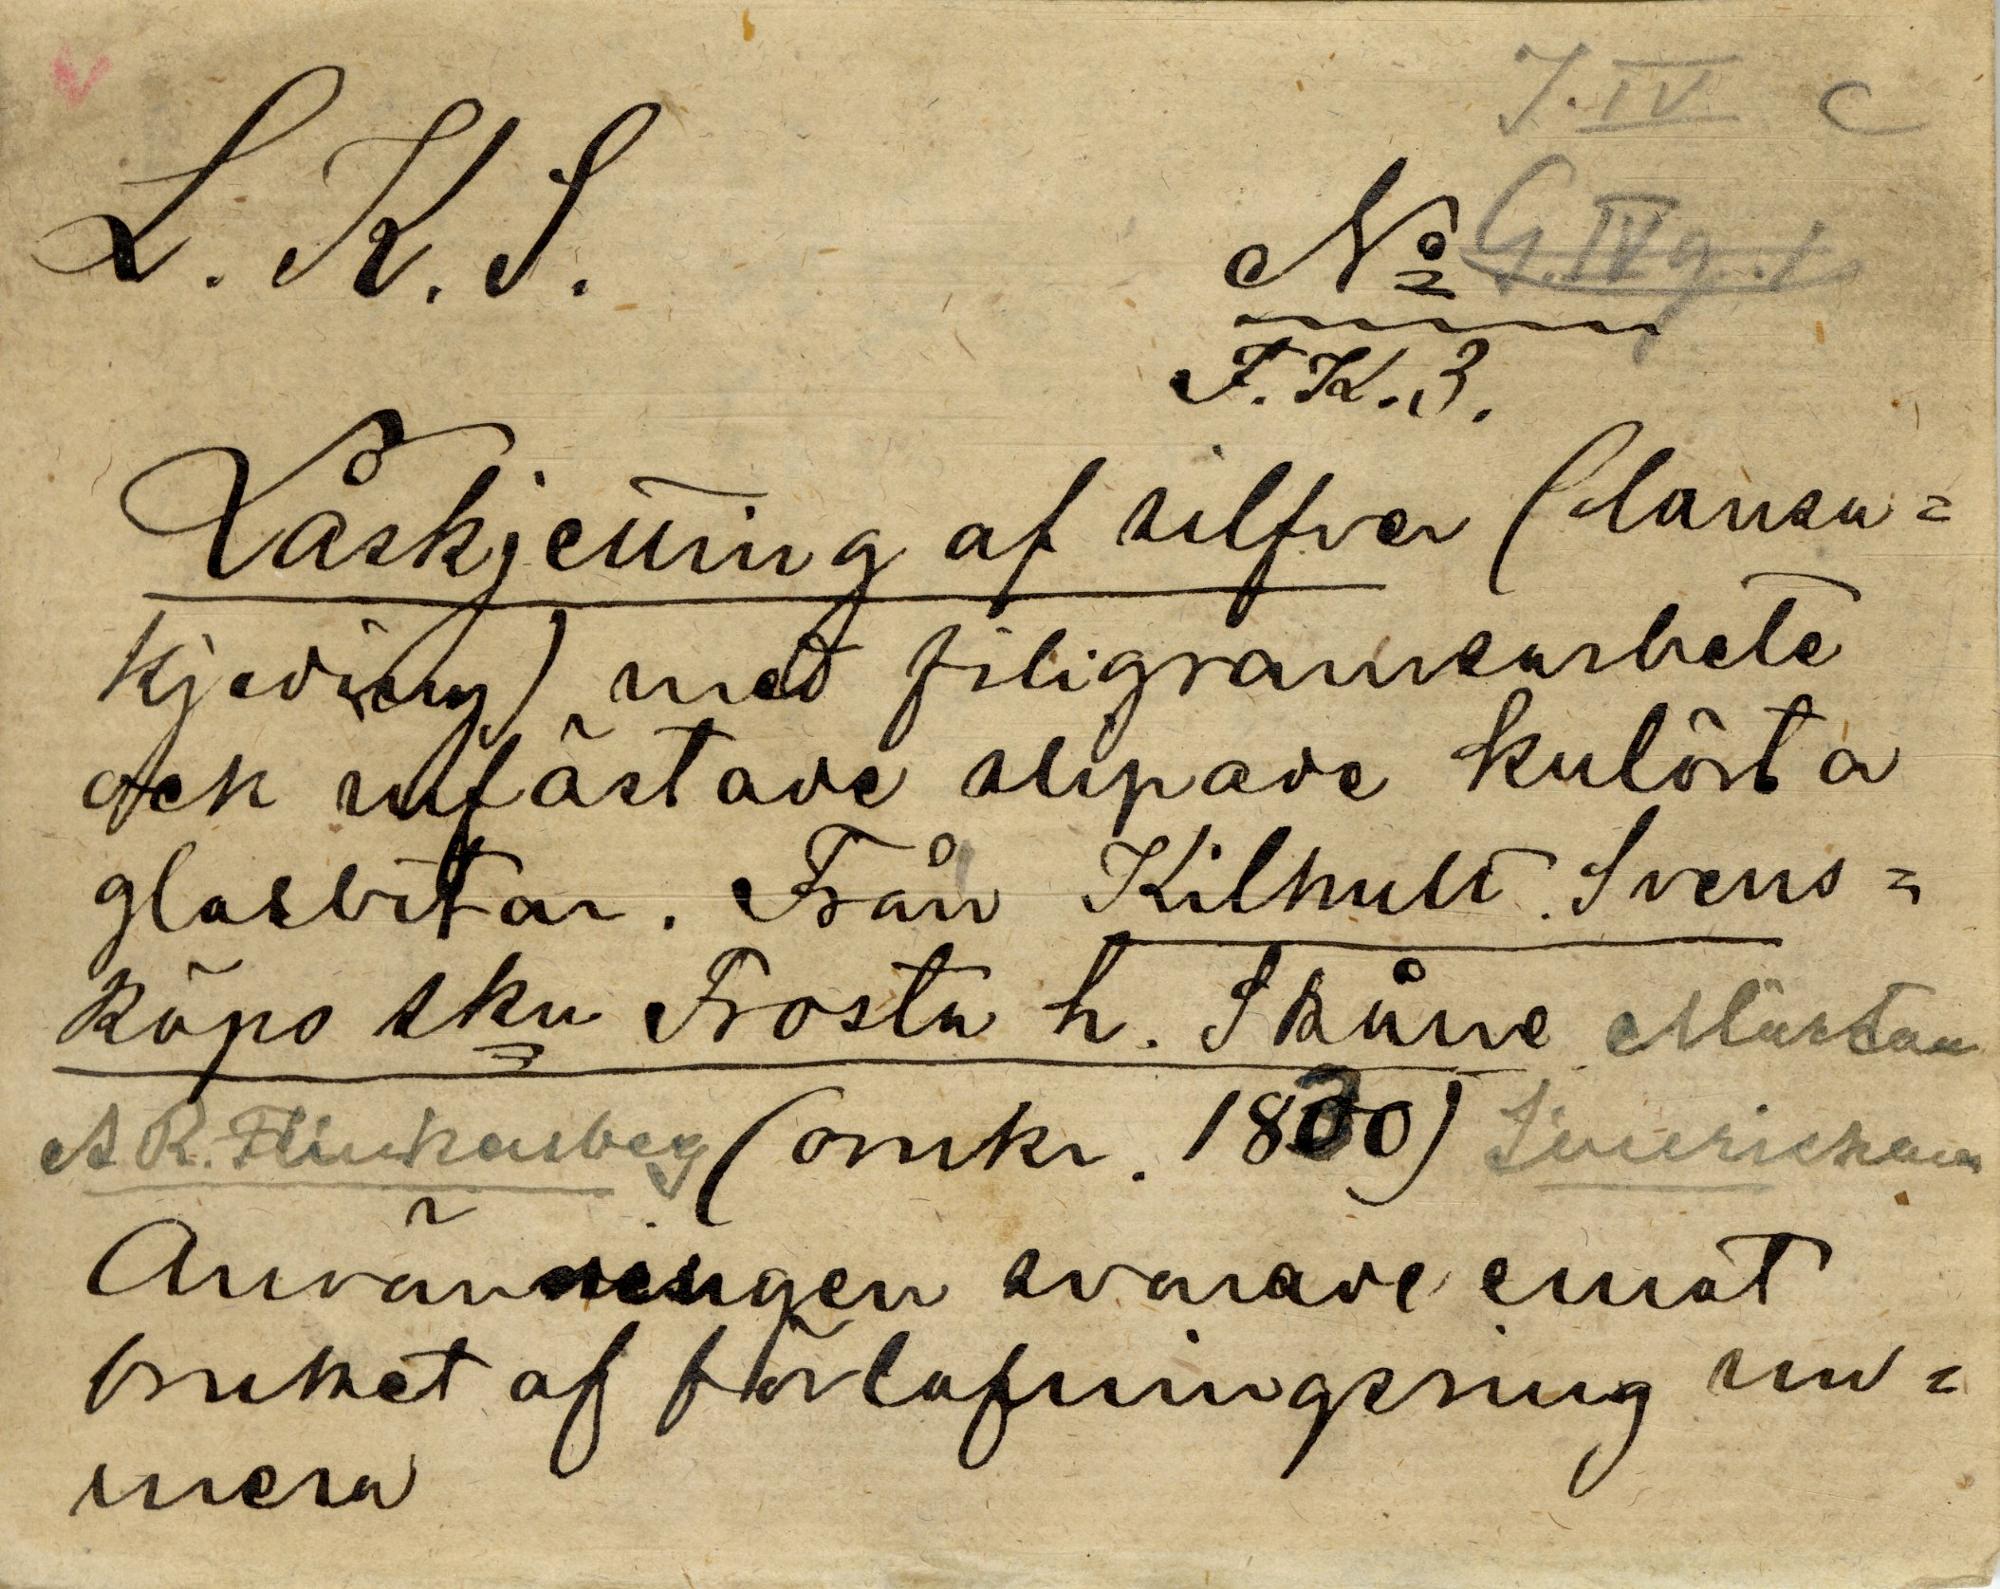 J. IV C
L. K. S.
No G. IV g. 1
F. K. 3.
Låskjetting af silfver (lansa=
kjeding) med filigramsarbete
och infästade slipade kulörta
glasbitar. Från Kilhult. Svens=
köps sku Frosta h. Skåne Mårtan
(omkr. 1830)
Använningen svarade emot
bruket af förlofningsring nu=
mera